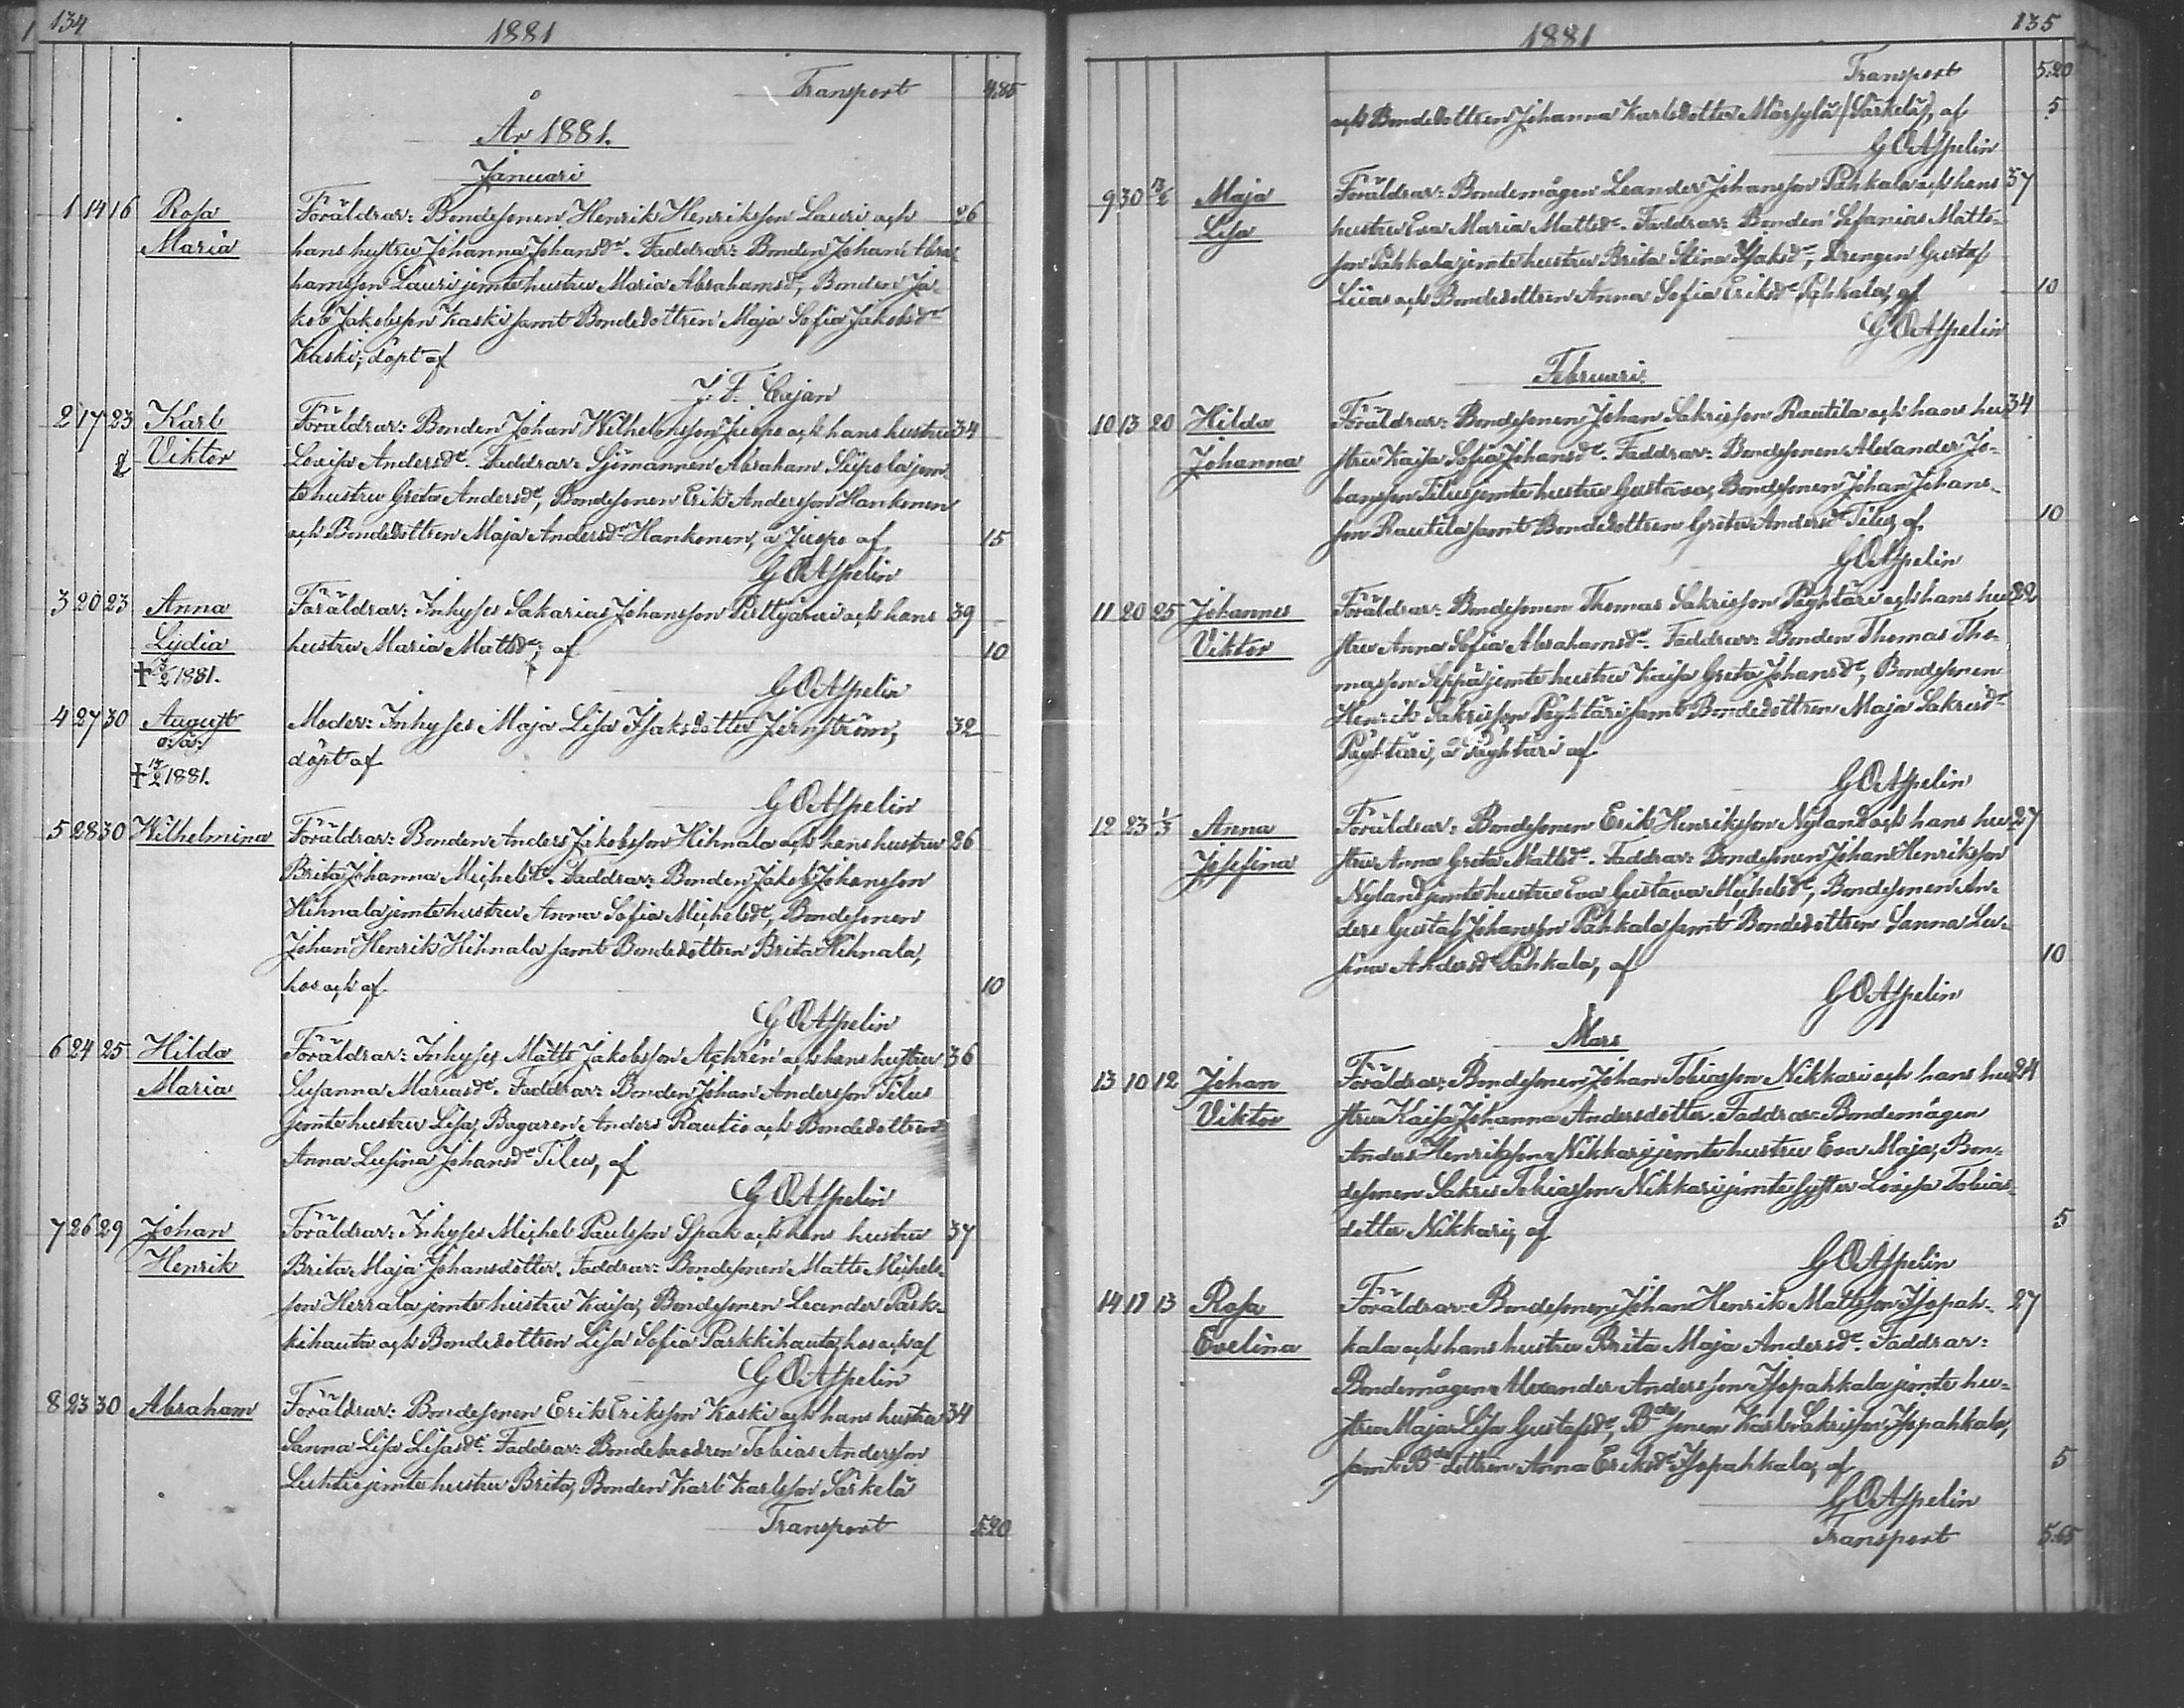 134
1881
Transport 4.85
År 1881.
Januari
1 14 16 Rosa Föräldrar: Bondesonen Henrik Henriksson Lauri och 26
Maria hans hustru Johanna Johansdr. Faddrar: Bonden Johan Abra-
hamsson Lauri jemte hustru Maria Abrahamsdr, Bonden Ja-
kob Jakobsson Kaski samt Bondedottren Maja Sofia Jakobsdr
Kaski, döpt af
J. F. Cajan
2 17 23 Karl Föräldrar: Bonden Johan Wilhelmsson Juopo och hans hustru 34
Viktor Lovisa Andersdr. Faddrar: Sjömannen Abraham Siipola jem-
te hustru Greta Andersdr, Bondesonen Erik Andersson Hankonen
och Bondedottren Maja Andersdr Hankonen, a Juopo af 15
G O Aspelin
3 20 23 Anna Föräldrar: Inhyses Sakarias Johansson Pirttijärvi och hans 39
Lydia hustru Maria Mattsdr, af 10
† 1881.
G O Aspelin
4 27 30 August Moder: Inhyses Maja Lisa Isaksdotter Jernström, 32
o: ä: döpt af
† 1881.
G O Aspelin
5 28 30 Wilhelmina Föräldrar: Bonden Anders Jakobsson Hihnala och hans hustru 26
Brita Johanna Michelsdr. Faddrar: Bonden Jakob Johansson
Hihnala jemte hustru Anna Sofia Michelsdr, Bondesonen
Johan Henrik Hihnala samt Bondedottren Brita Hihnala,
hos och af 10
G O Aspelin
6 24 25 Hilda Föräldrar: Inhyses Matts Jakobsson Achrén och hans hustru 36
Maria Susanna Mariasdr. Faddrar: Bonden Johan Andersson Tilus
jemte hustru Lisa, Bagaren Anders Rautio och Bondedottren
Anna Lusina Johansdr Tilus, af
G O Aspelin
7 26 29 Johan Föräldrar: Inhyses Michel Paulsson Spak och hans hustru 37
Henrik Brita Maja Johansdotter. Faddrar: Bondesonen Matts Michels-
son Herrala jemte hustru Kaisa, Bondesonen Leander Park-
kihauta och Bondedottren Lisa Sofia Parkkihauta, hos och af
G O Aspelin
8 23 30 Abraham Föräldrar: Bondesonen Erik Eriksson Kaski och hans hustru 34
Sanna Lisa Lisasdr. Faddrar: Bondebrodren Tobias Andersson
Luhti jemte hustru Brita, Bonden Karl Karlsson Särkelä
Transport 5.20
135
1881
Transport 5.20
och Bondedottren Johanna Karlsdotter Märsylä (Särkelä), af 5
G O Aspelin
9 30 13/2 Maja Föräldrar: Bondemågen Leander Johansson Pahkala och hans 37
Lisa hustru Eva Maria Mattsdr. Faddrar: Bonden Sefanias Matts-
son Pahkala jemte hustru Brita Stina Isaksdr, Drengen Gustaf
Liias och Bondedottren Anna Sofia Eriksdr Pahkala, af 10
G O Aspelin
Februari
10 13 20 Hilda Föräldrar: Bondesonen Johan Sakrisson Rautila och hans hu- 34
Johanna stru Kaisa Sofia Johansdr. Faddrar: Bondesonen Alexander Jo-
hansson Tilus jemte hustru Gustava, Bondesonen Johan Johans-
son Rautila samt Bondedottren Greta Andersdr Tilus, af 10
G O Aspelin
11 20 25 Johannes Föräldrar: Bondesonen Thomas Sakrisson Pöyhtäri och hans hu- 22
Viktor stru Anna Sofia Abrahamsdr. Faddrar: Bonden Thomas Tho-
masson Seppä jemte hustru Kaisa Greta Johansdr, Bondesonen
Henrik Sakrisson Pöyhtäri samt Bondedottren Maja Sakrisdr
Pöyhtäri, a Pöyhtäri af
G O Aspelin
12 23 1/3 Anna Föräldrar: Bondesonen Erik Henriksson Nyland och hans hu- 27
Josefina stru Anna Greta Mattsdr. Faddrar: Bondesonen Johan Henriksson
Nyland jemte hustru Eva Gustava Michelsdr, Bondesonen An-
ders Gustaf Johansson Pahkala samt Bondedottren Sanna Lu-
sina Andersdr Pahkala, af 10
G O Aspelin
Mars
13 10 12 Johan Föräldrar: Bondesonen Johan Tobiasson Nikkari och hans hu- 24
Viktor stru Kaisa Johanna Andersdotter. Faddrar: Bondemågen
Anders Henriksson Nikkari jemte hustru Eva Maja, Bon-
desonen Sakris Tobiasson Nikkari jemte syster Lovisa Tobias-
dotter Nikkari, af 5
G O Aspelin
14 11 13 Rosa Föräldrar: Bondesonen Johan Henrik Mattsson Isopah- 27
Evelina kala och hans hustru Brita Maja Andersdr. Faddrar:
Bondemågen Alexander Andersson Isopahkala jemte hu-
stru Maja Lisa Gustafsdr, Bdesonen Karl Sakrisson Isopahkala,
samt Bdedottren Anna Eriksdr Isopahkala, af 5
G O Aspelin
Transport 5.65